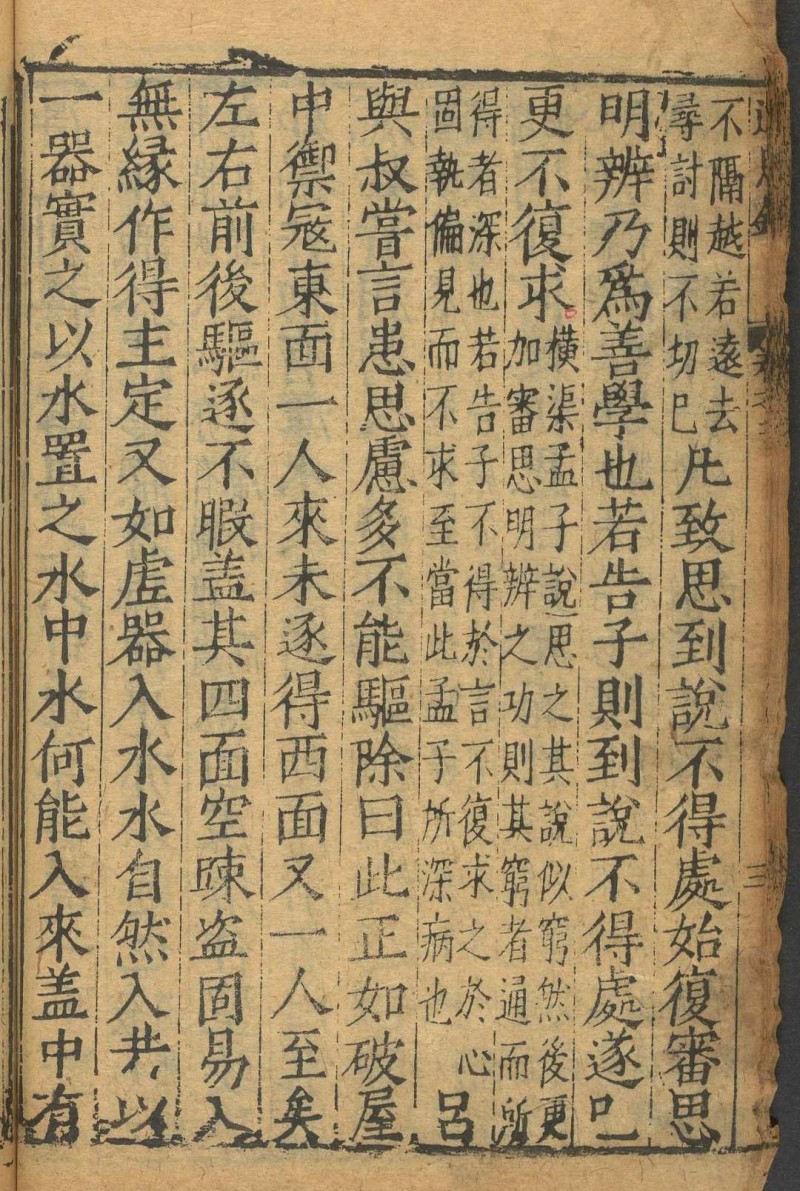 不隔越若遠去
尋討則不切巳
凡致思到說不得處始復審思
明辨乃爲善學也若告子則到說不得處遂巳
更不復求
橫渠孟子說思之其說似窮然後更
加審思明辨之功則其窮者通而所
得者深也若告子不得於言不復求之於心
固執偏見而不求至當此孟子所深病也
呂
與叔嘗言患思慮多不能驅除曰此正如破屋
中禦冦東面一人來未逐得西面又一人至矣
左右前後驅逐不暇盖其四面空踈盗固易入
無緣作得主定又如虗器入水水自然入若以
一器實之以水置之水中水何能入來盖中有
三